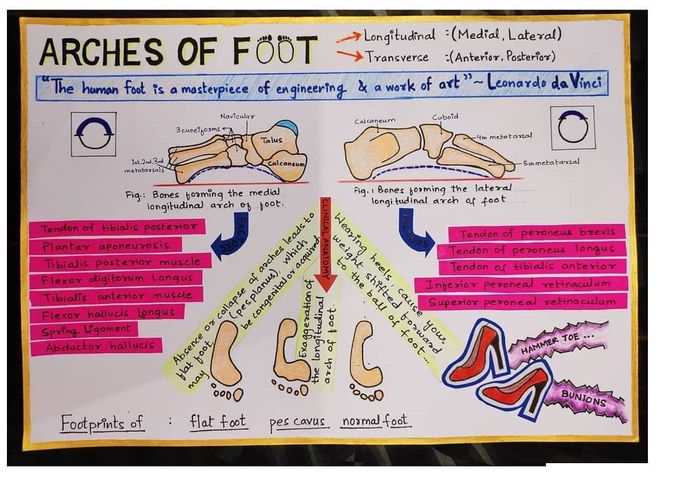 ARCHES OF FOOT
Longitudinal :(Medial, Lateral)
Transverse :(Anterior, Posterior)
"The human foot is a masterpiece of engineering & a work of art"~ Leonardo da Vinci
Navicular
3 cuneiforms
Talus
Calcaneum
1st, 2nd, 3rd
metatarsals
Fig.: Bones forming the medial
longitudinal arch of foot.
Calcaneum
Cuboid
4th metatarsal
5th metatarsal
Fig.: Bones forming the lateral
longitudinal arch of foot
FACTORS
Tendon of tibialis posterior
Plantar aponeurosis
Tibialis posterior muscle
Flexor digitorum longus
Tibialis anterior muscle
Flexor hallucis longus
Spring ligament
Abductor hallucis
CLINICAL ANATOMY
Absence or collapse of arches leads to
flat foot (pes planus), which
may be congenital or acquired
Exaggeration of
the longitudinal
arch of foot
Wearing heels cause your
weight shifted forward
to the ball of foot...
FACTORS
Tendon of peroneus brevis
Tendon of peroneus longus
Tendon of tibialis anterior
Inferior peroneal retinaculum
Superior peroneal retinaculum
HAMMER TOE ...
BUNIONS
Footprints of : flat foot pes cavus normal foot